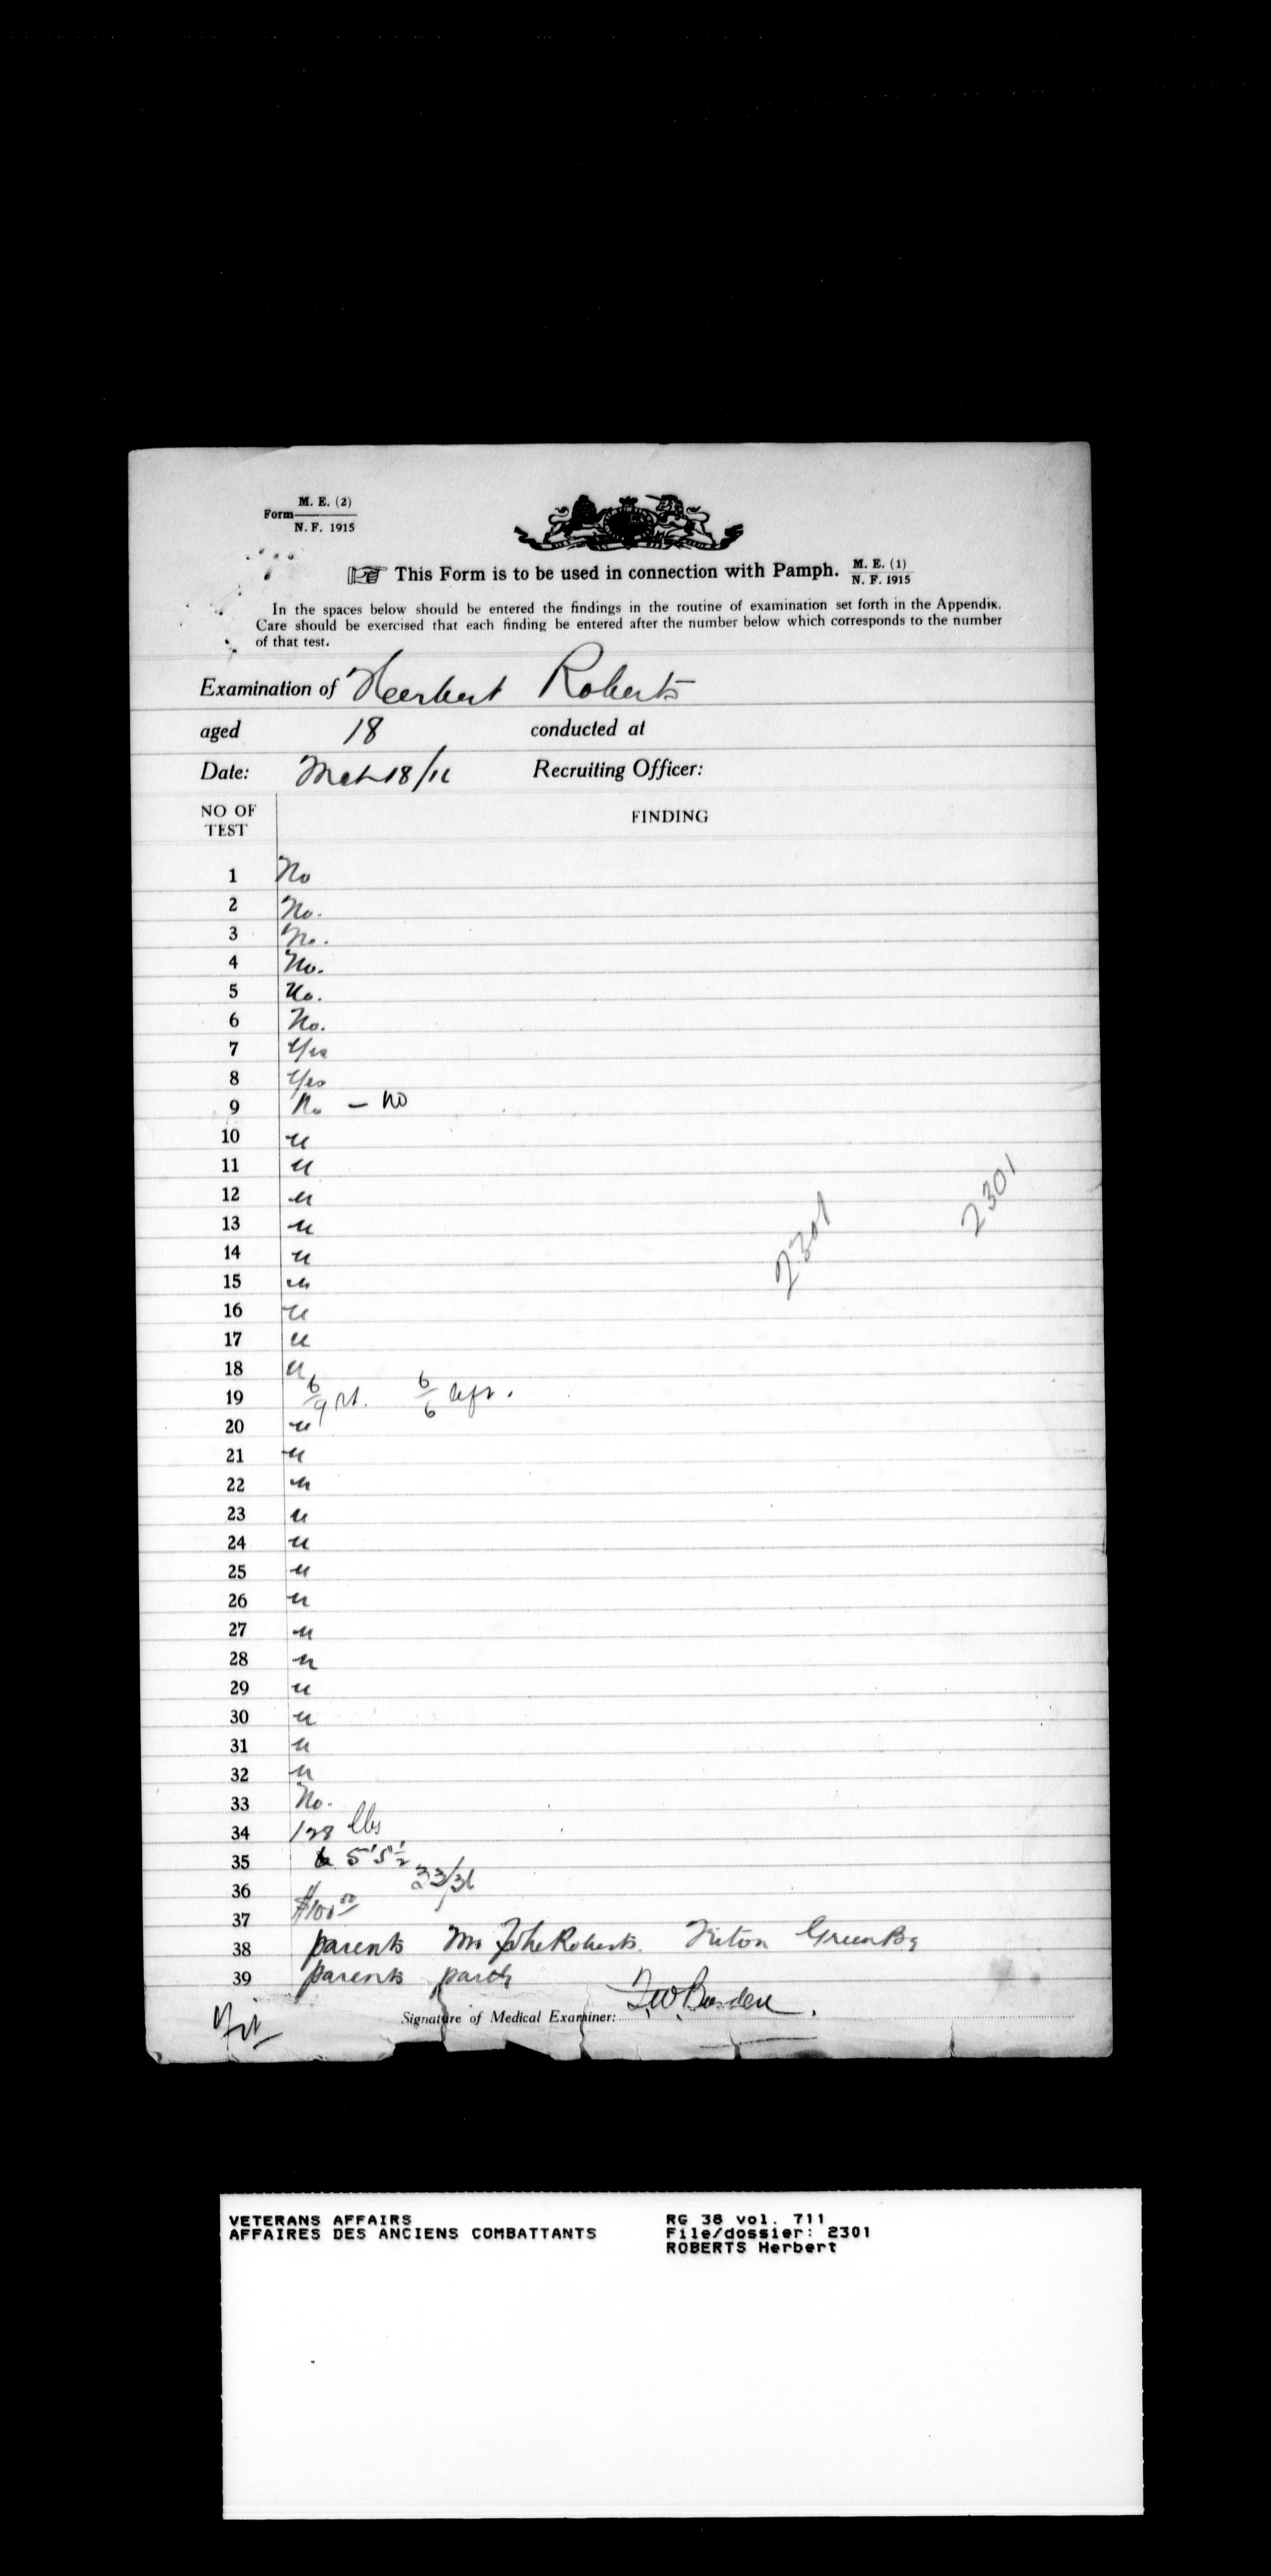 Form M. E. (2)
N. F. 1915
This Form is to be used in connection with Pamph. M. E. (1)
N. F. 1915
In the spaces below should be entered the findings in the routine of examination set forth in the Appendix.
Care should be exercised that each finding be entered after the number below which corresponds to the number
of that test.
Examination of Herbert Roberts
aged 18 conducted at
Date: Mch 18/16 Recruiting Officer:
NO OF TEST FINDING
1 No
2 No.
3 No.
4 No.
5 No.
6 No.
7 Yes
8 Yes
9 No - No
10 u
11 u
12 u
13 u
14 u
15 u
16 u
17 u
18 u
19 6/9 rt. 6/6 left.
20 u
21 u
22 u
23 u
24 u
25 u
26 u
27 u
28 u
29 u
30 u
31 u
32 u
33 No.
34 128 lbs
35 5'5½
36 33/36
37 $100.00
38 parents Mr Roberts. Triton Green Bay
39 parents
2301
2301
Fit
Signature of Medical Examiner:
VETERANS AFFAIRS RG 38 vol. 711
AFFAIRES DES ANCIENS COMBATTANTS File/dossier: 2301
ROBERTS Herbert